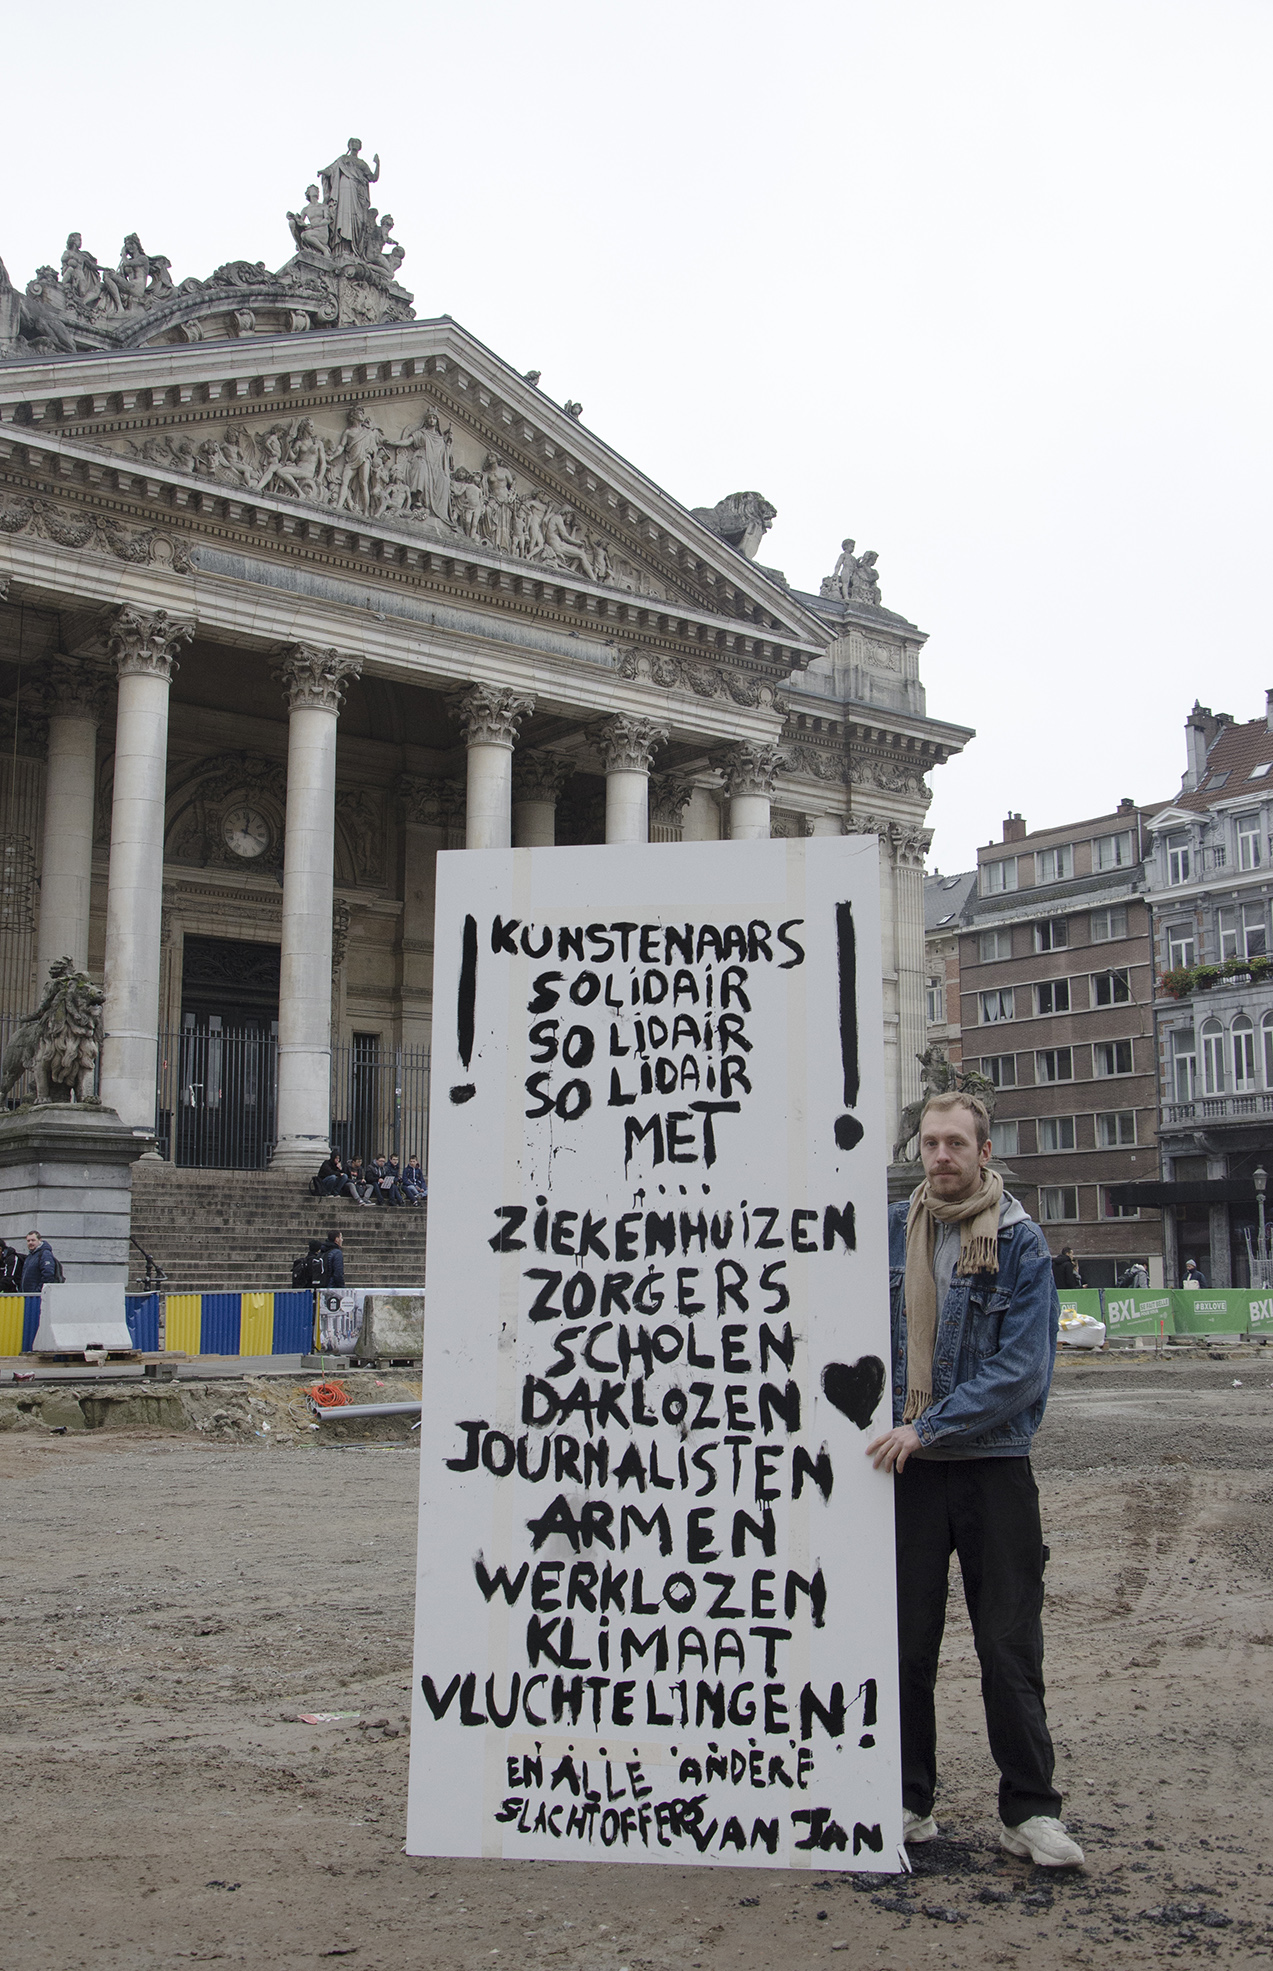 ! KUNSTENAARS !
SOLiDAiR
SOLiDAiR
SOLiDAiR
MET
...
ZiEKENHUiZEN
ZORGERS
SCHOLEN
DAKLOZEN ♥
JOURNALiSTEN
ARMEN
WERKLOZEN
KLiMAAT
VLUCHTELINGEN!
EN ALLE ANDERE
SLACHTOFFERS VAN JAN
BXL
#BXLOVE
BXL